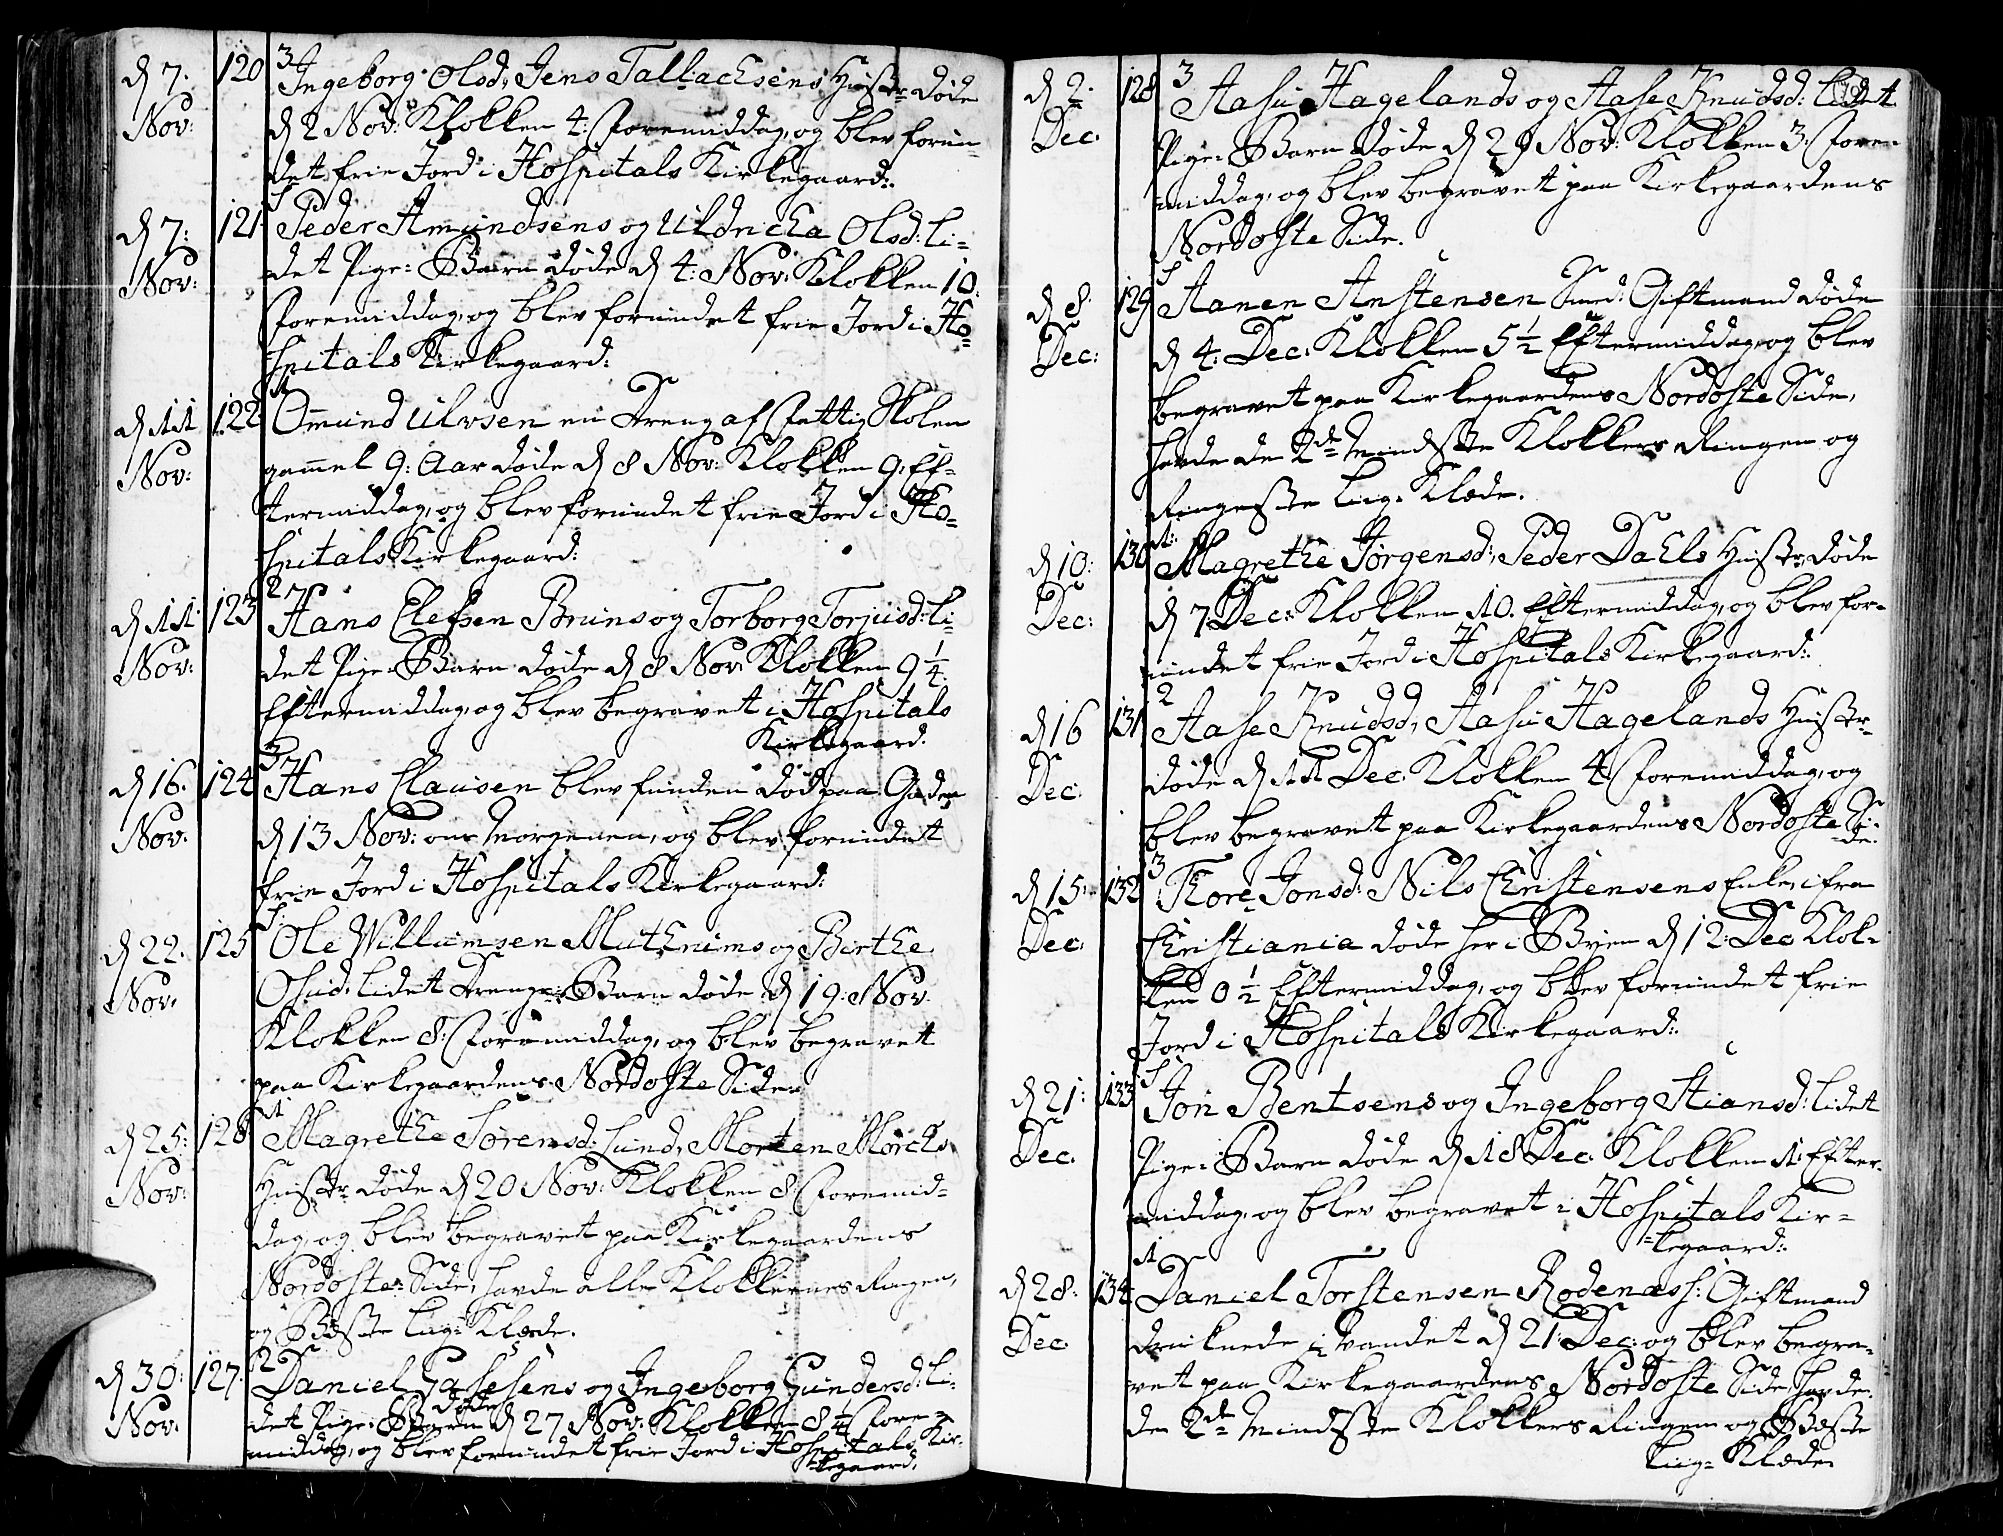 d 7. 120 3 Ingeborg Olsd, Jens Tallachsens Hustr døde
Nov: d 2 Nov: Klokken 4: Formiddag, og blev forun-
det frie Jord i Hospitals Kirkegaard:
d 7: 121 Peder Amundsens og Uldricha Olsd: li-
Nov: det Pige: Barn døde d 4: Nov: Klokken 10:
Foremiddag, og blev forundet frie Jord i Ho-
spitals Kirkegaard:
d 11 122 Omund Ulvsen en Dreng af Fattig Skolen
Nov: gammel 9: Aar døde d 8 Nov: Klokken 9: Ef-
termiddag, og blev forundet frie Jord i Ho-
spitals Kirkegaard:
d 11: 123 2 Hans Elefsen Bruns og Torborg Torjusd: li-
Nov: det Pige Barn døde d 8 Nov: Klokken 9 1/4:
Eftermiddag, og blev begravet i Hospitals
Kirkegaard.
d 16. 124 3 Hans Clausen blev funden død paa Gaden
Nov. d 13 Nov: om Morgenen, og blev forundet
frie Jord i Hospitals Kirkegaard:
d 22. 125 Ole Willumsen Muthrums og Birthe
Nov. Osud: lidet Drenge: Barn døde d 19: Nov:
Klokken 8: Foremiddag, og blev begravet
paa Kirkegaardens Nordoste Side.
d 25: 126 1 Magrethe Sørensd: Lund, Morten Mørchs
Nov: Hustr: døde d 20 Nov: Klokken 8 Foremid-
dag, og blev begravet paa Kirkegaardens
Nordoste Side, havde alle Klokkernes Ringen,
og Beste Liig: Klæde.
d 30: 127. 2 Daniel Gasesens og Ingeborg Gundersd: li-
Nov. det Pige: Barn døde d 27 Nov: Klokken 8 1/4 Fore-
middag, og blev forundet frie Jord i Hospitals Kir-
kegaard.
d 2. 128 3 Aasu Hagelands og Aase Knudsd: lidet
Dec. Pige: Barn døde d 29 Nov: Klokken 3: Fore-
middag, og blev begravet paa Kirkegaardens
Nordoste Side.
d 8. 129 Aanen Anstensen Smed: Giftmand døde
Dec: d 4: Dec: Klokken 5 1/2 Eftermiddag, og blev
begravet paa Kirkegaardens Nordoste Side,
havde de 2de Mindste Klokkers Ringen og
Ringeste Liig: Klæde.
d 10: 130 1: Magrethe Jørgensd:, Peder Dahls Hustr: døde
Dec: d 7 Dec: Klokken 10. Eftermiddag, og blev for-
undet frie Jord i Hospitals Kirkegaard:
d 16 131 2 Aase Knudsd, Aasu Hagelands Hustr:
Dec: døde d 11 Dec: Klokken 4 Foremiddag, og
blev begravet paa Kirkegaardens Nordoste Si-
de.
d 15. 132 3 Thore Jonsd: Nils Christensens Enke, ifra
Dec: Christiania døde her i Byen d 12: Dec Klok-
ken 0 1/2 Eftermiddag, og blev forundet frie
Jord i Hospitals Kirkegaard:
d 21: 133 Jon Bentsens og Ingeborg Stiansd: lidet
Dec. Pige: Barn døde d 18 Dec: Klokken 1: Efter-
middag, og blev begravet i Hospitals Kir-
kegaard:
d 28: 134 1 Daniel Torstensen Rodenæss: Giftmand
Dec. druknede i Vandet d 21: Dec: og blev begra-
vet paa Kirkegaardens Nordoste Side, havde
de 2de Mindste Klokkers Ringen og Beste
Liig: Klæde.